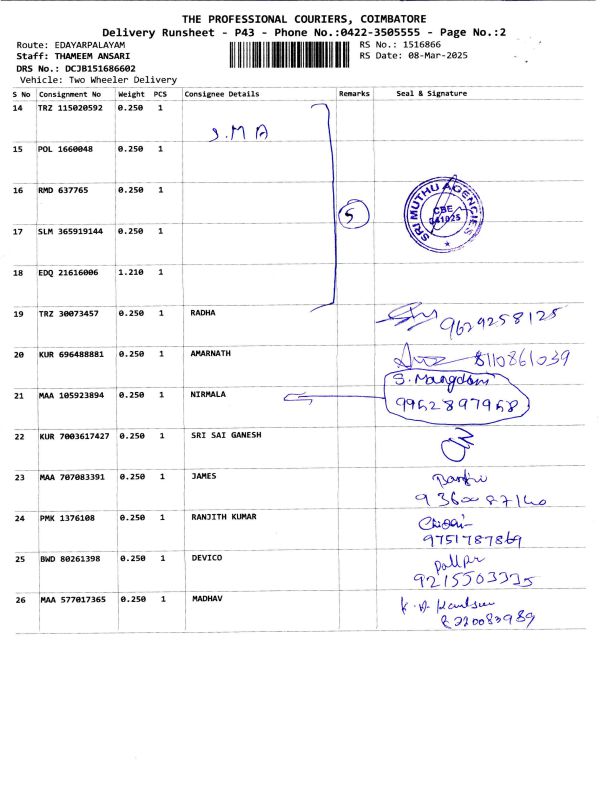 THE PROFESSIONAL COURIERS, COIMBATORE
Delivery Runsheet - P43 - Phone No.:0422-3505555 - Page No.:2
Route: EDAYARPALAYAM RS No.: 1516866
Staff: THAMEEM ANSARI RS Date: 08-Mar-2025
DRS No.: DCJB151686602
Vehicle: Two Wheeler Delivery
S No Consignment No Weight PCS Consignee Details Remarks Seal & Signature
14 TRZ 115020592 0.250 1
S.M A
15 POL 1660048 0.250 1
16 RMD 637765 0.250 1
5
SRI MUTHU AGENCIES
CBE
641025
17 SLM 365919144 0.250 1
18 EDQ 21616006 1.210 1
19 TRZ 30073457 0.250 1 RADHA
9629258125
20 KUR 696488881 0.250 1 AMARNATH
8110861039
21 MAA 105923894 0.250 1 NIRMALA
9952897968
22 KUR 7003617427 0.250 1 SRI SAI GANESH
23 MAA 707083391 0.250 1 JAMES
24 PMK 1376108 0.250 1 RANJITH KUMAR
9751787869
25 BWD 80261398 0.250 1 DEVICO
9215503335
26 MAA 577017365 0.250 1 MADHAV
8220083989